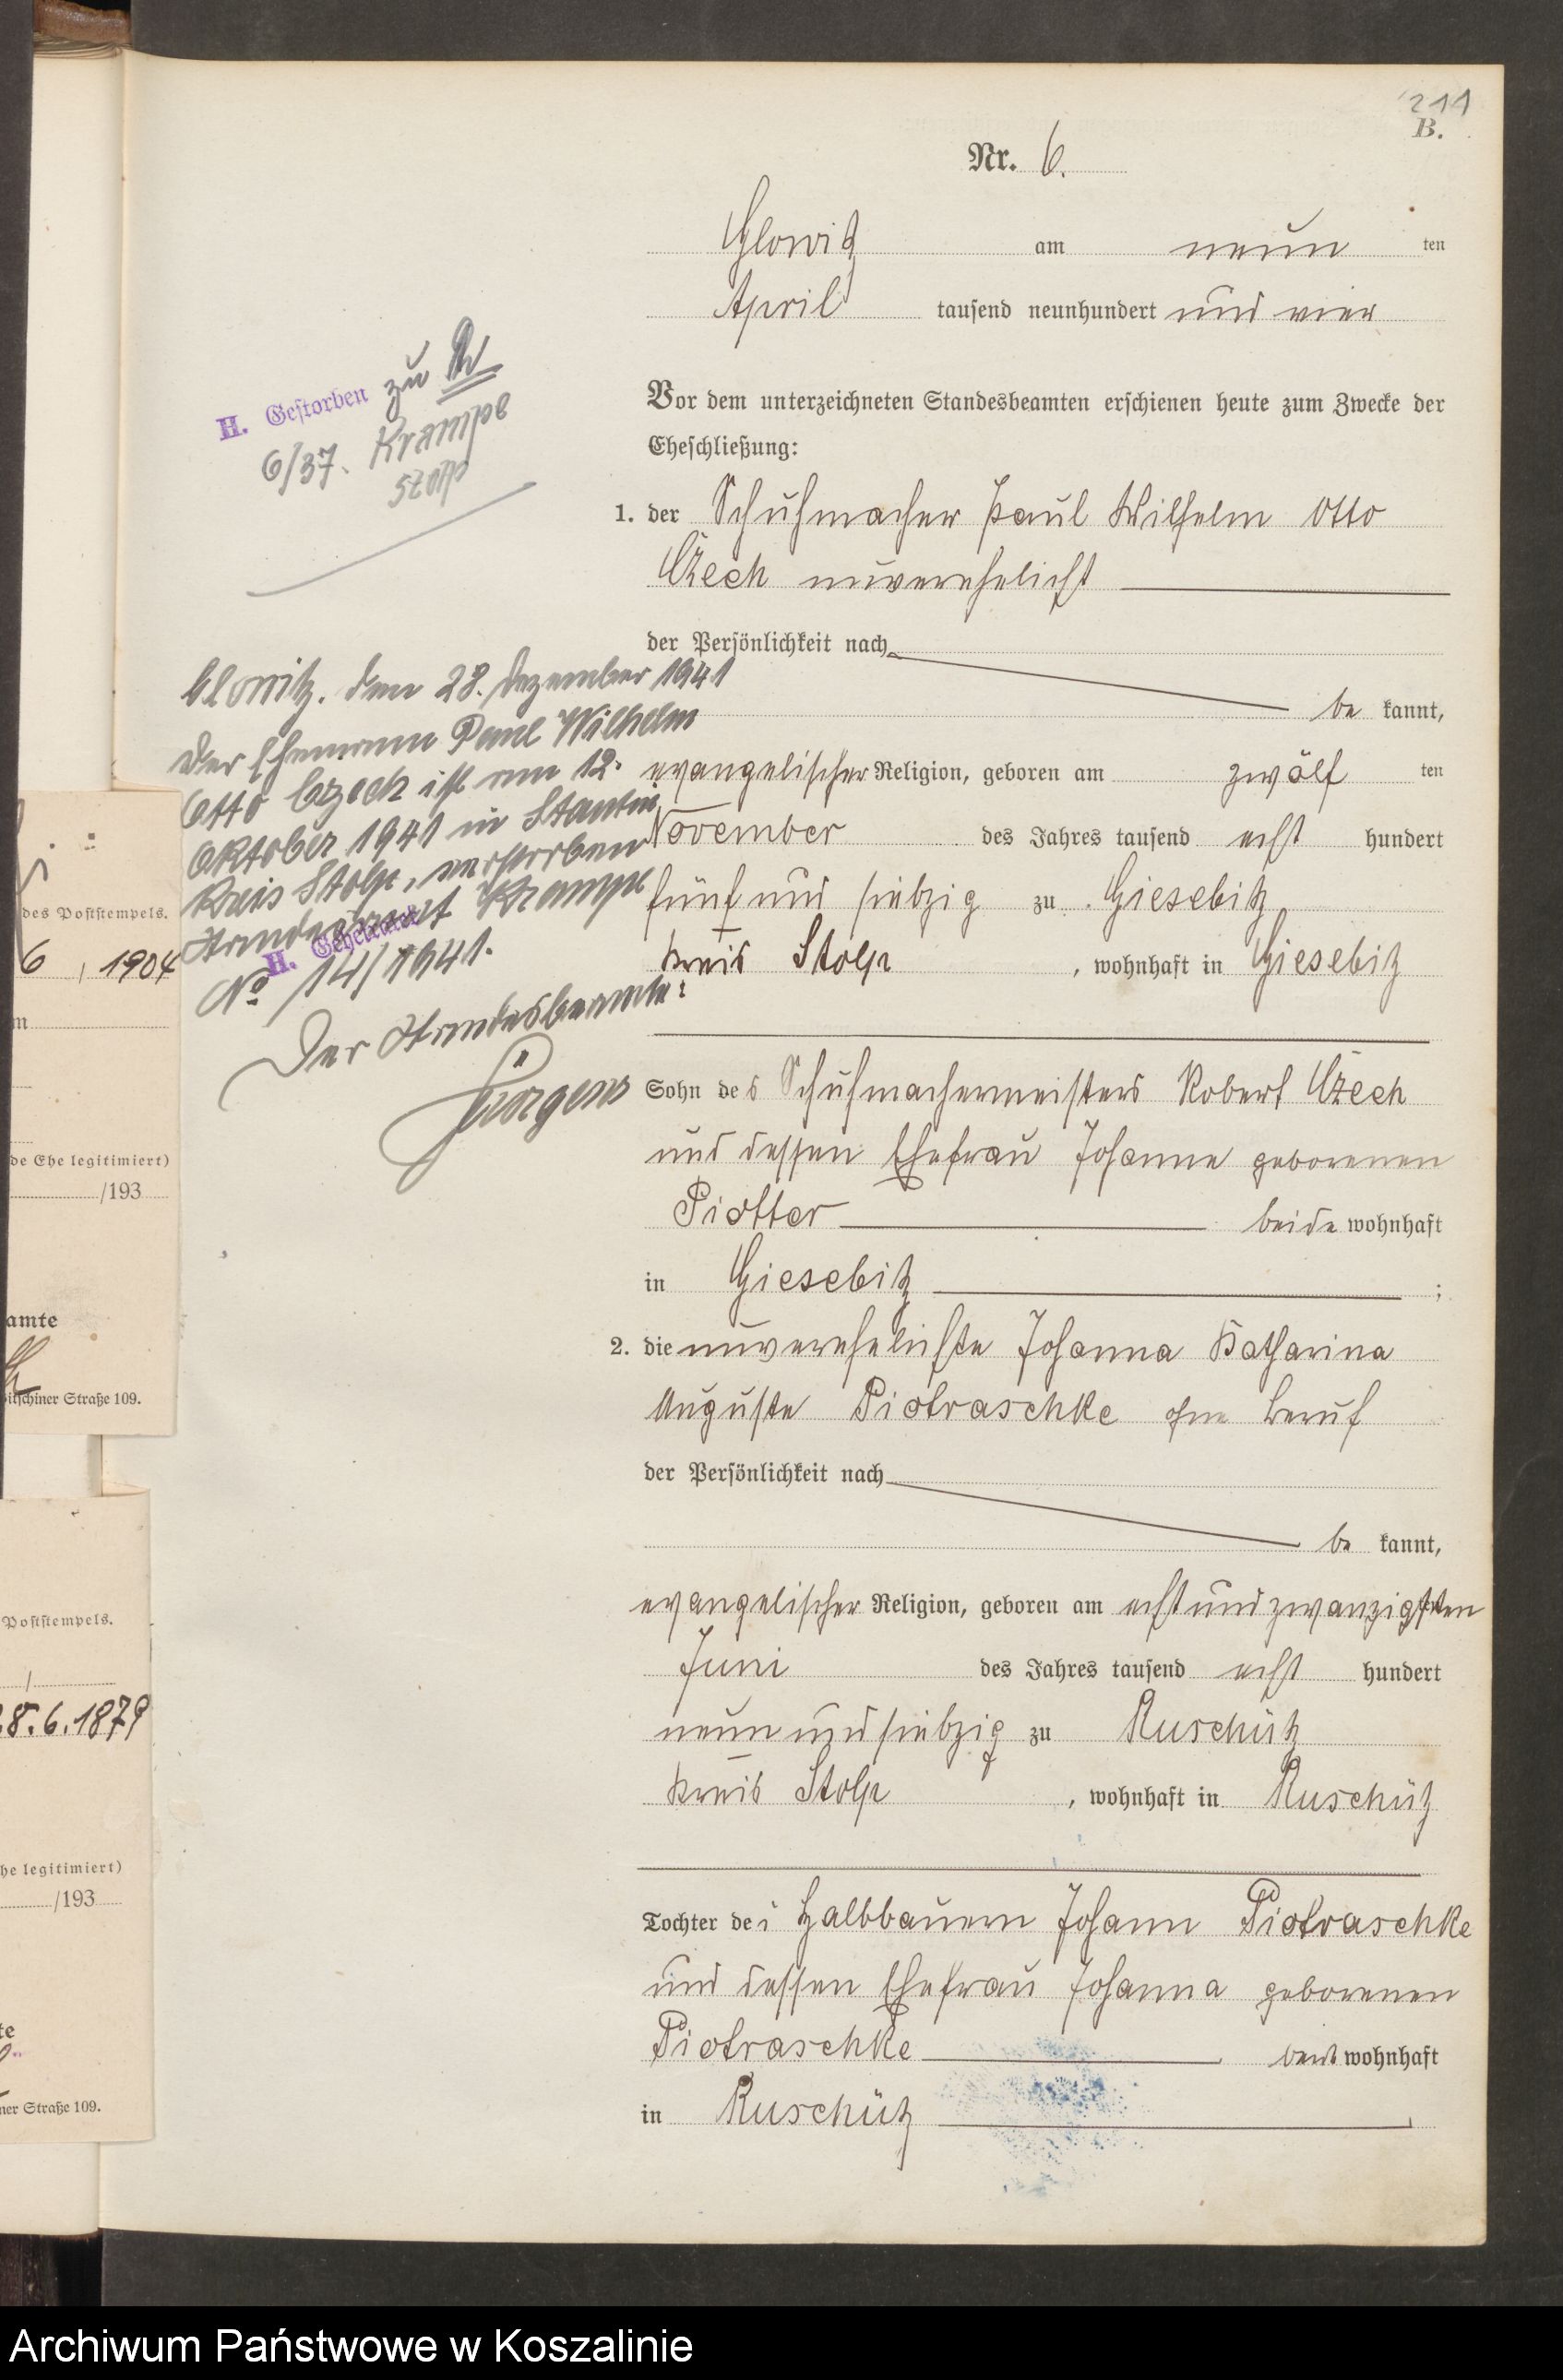 211
B.
Nr. 6.
Glowitz am neun ten
April tausend neunhundert und vier
Vor dem unterzeichneten Standesbeamten erschienen heute zum Zwecke der
Eheschließung:
1. der Schuhmacher Paul Wilhelm Otto
Czech unverehelicht
der Persönlichkeit nach
be kannt,
evangelischer Religion, geboren am zwölf ten
November des Jahres tausend acht hundert
fünf und siebzig zu Giesebitz
Kreis Stolp, wohnhaft in Giesebitz
Sohn des Schuhmachermeisters Robert Czech
und dessen Ehefrau Johanne geborenen
Piotter beide wohnhaft
in Giesebitz ;
2. die unverehelichte Johanna Katharina
Auguste Piotraschke ohne Beruf
der Persönlichkeit nach
be kannt,
evangelischer Religion, geboren am acht und zwanzigsten
Juni des Jahres tausend acht hundert
neun und siebzig zu Ruschütz
Kreis Stolp, wohnhaft in Ruschütz
Tochter des Halbbauern Johann Piotraschke
und dessen Ehefrau Johanna geborenen
Piotraschke wohnhaft
in Ruschütz
H. Gestorben zu
6/37. Krampe
Stolp
Glowitz. den 28. Dezember 1941
Der Ehemann Paul Wilhelm
Otto Czech ist am 12.
Oktober 1941 in Stantin
Kreis Stolp, verstorben
Standesamt Krampe
H.
No 14/1941.
Der Standesbeamte:
Jürgens
des Poststempels.
6, 1904
de Ehe legitimiert)
/193
amte
itschiner Straße 109.
Poststempels.
8.6.1879
he legitimiert)
/193
te
ner Straße 109.
Archiwum Państwowe w Koszalinie